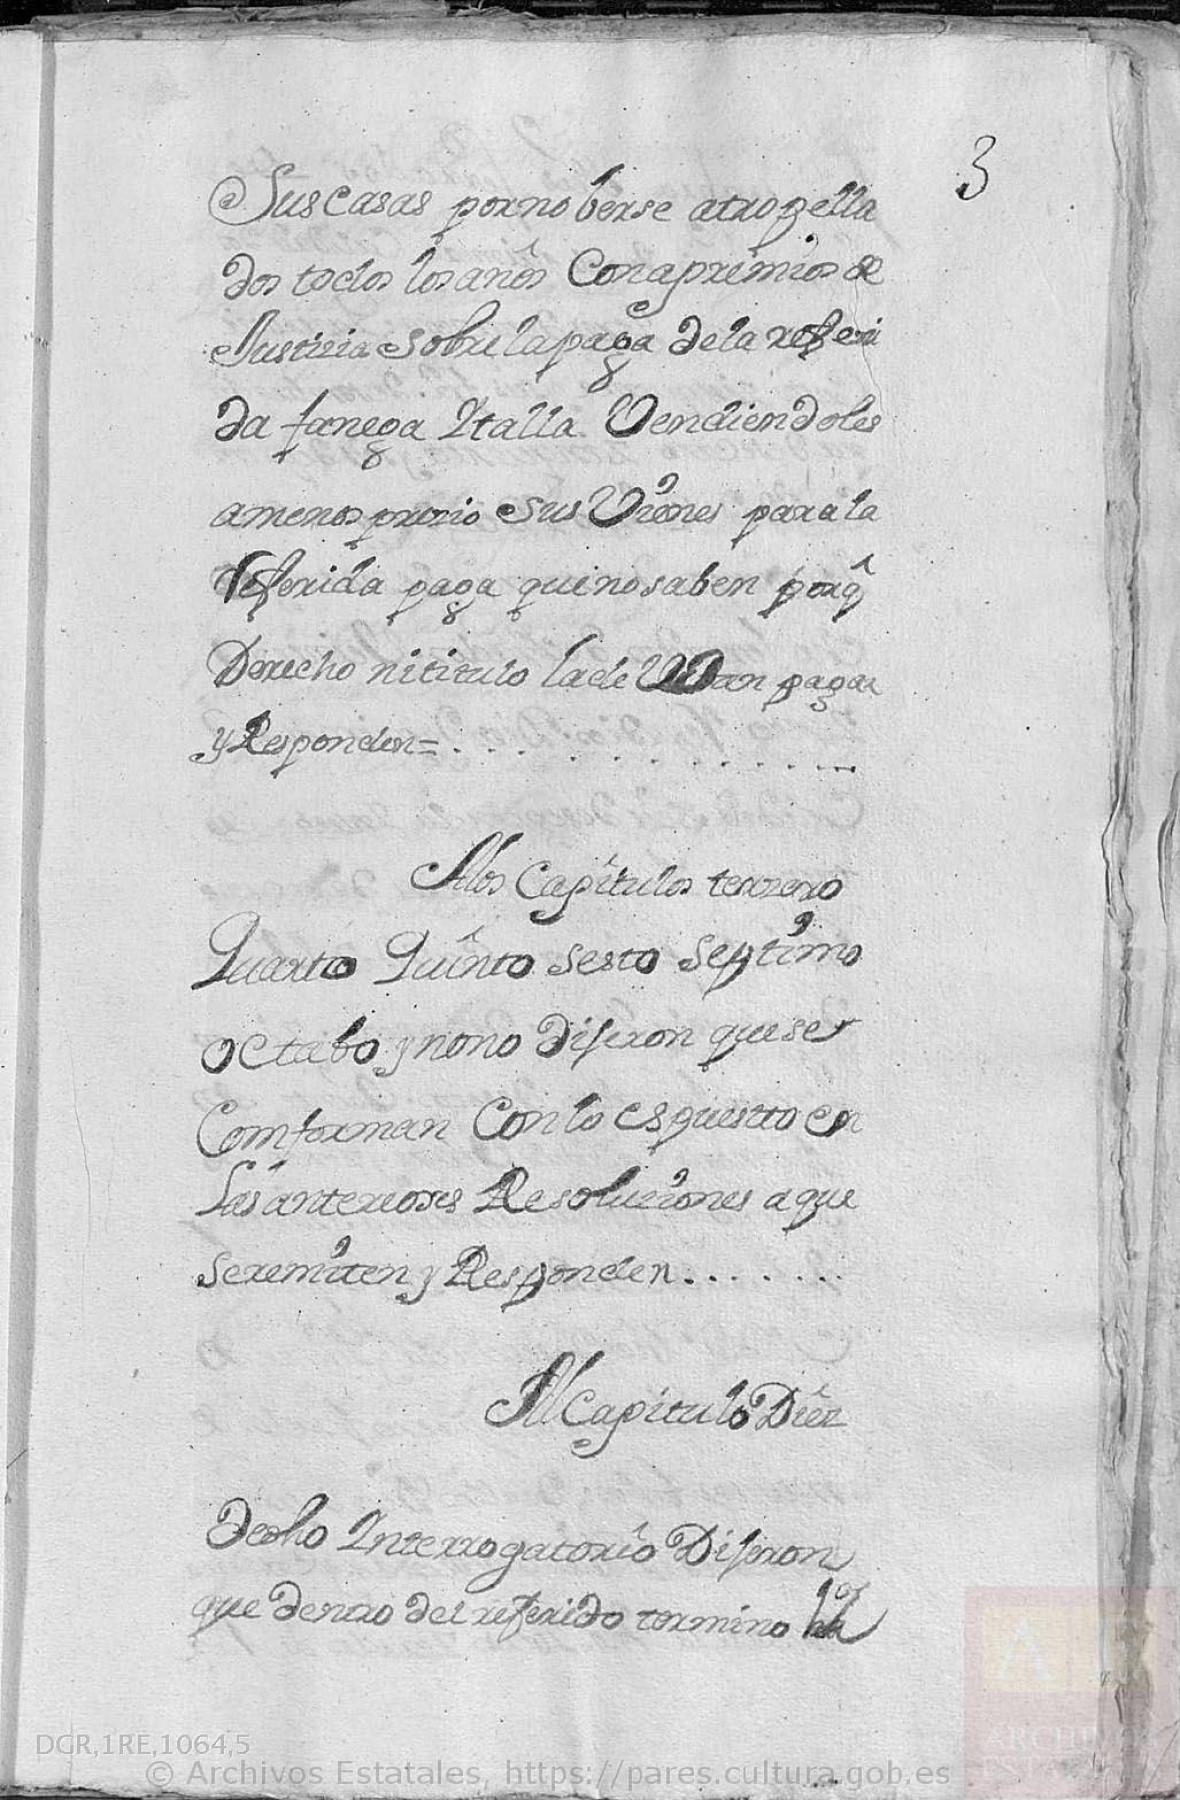 3
Sus casas por no berse atropella
dos todos los años Con apremios de
Justizia sobre la paga de la referi
da fanega Y talla Vendiendoles
a menos prezio sus Vienes para la
referida paga qui no saben porq̂
Derecho ni titulo la de Van pagar
y Responden = . . . . . . . . . .
A los Capitulos terzero
Quarto Quinto sesto septimo
octabo y nono Dijeron que se
Comforman Con lo espuesto en
Las anteriores Resoluziones a que
se remiten y Responden . . . . . . .
Al Capitulo Diez
de dho Interrogatorio Dijeron
que dentro del referido termino
DGR,1RE,1064,5
© Archivos Estatales, https://pares.cultura.gob.es
ARCHIVOS
ESTATALES